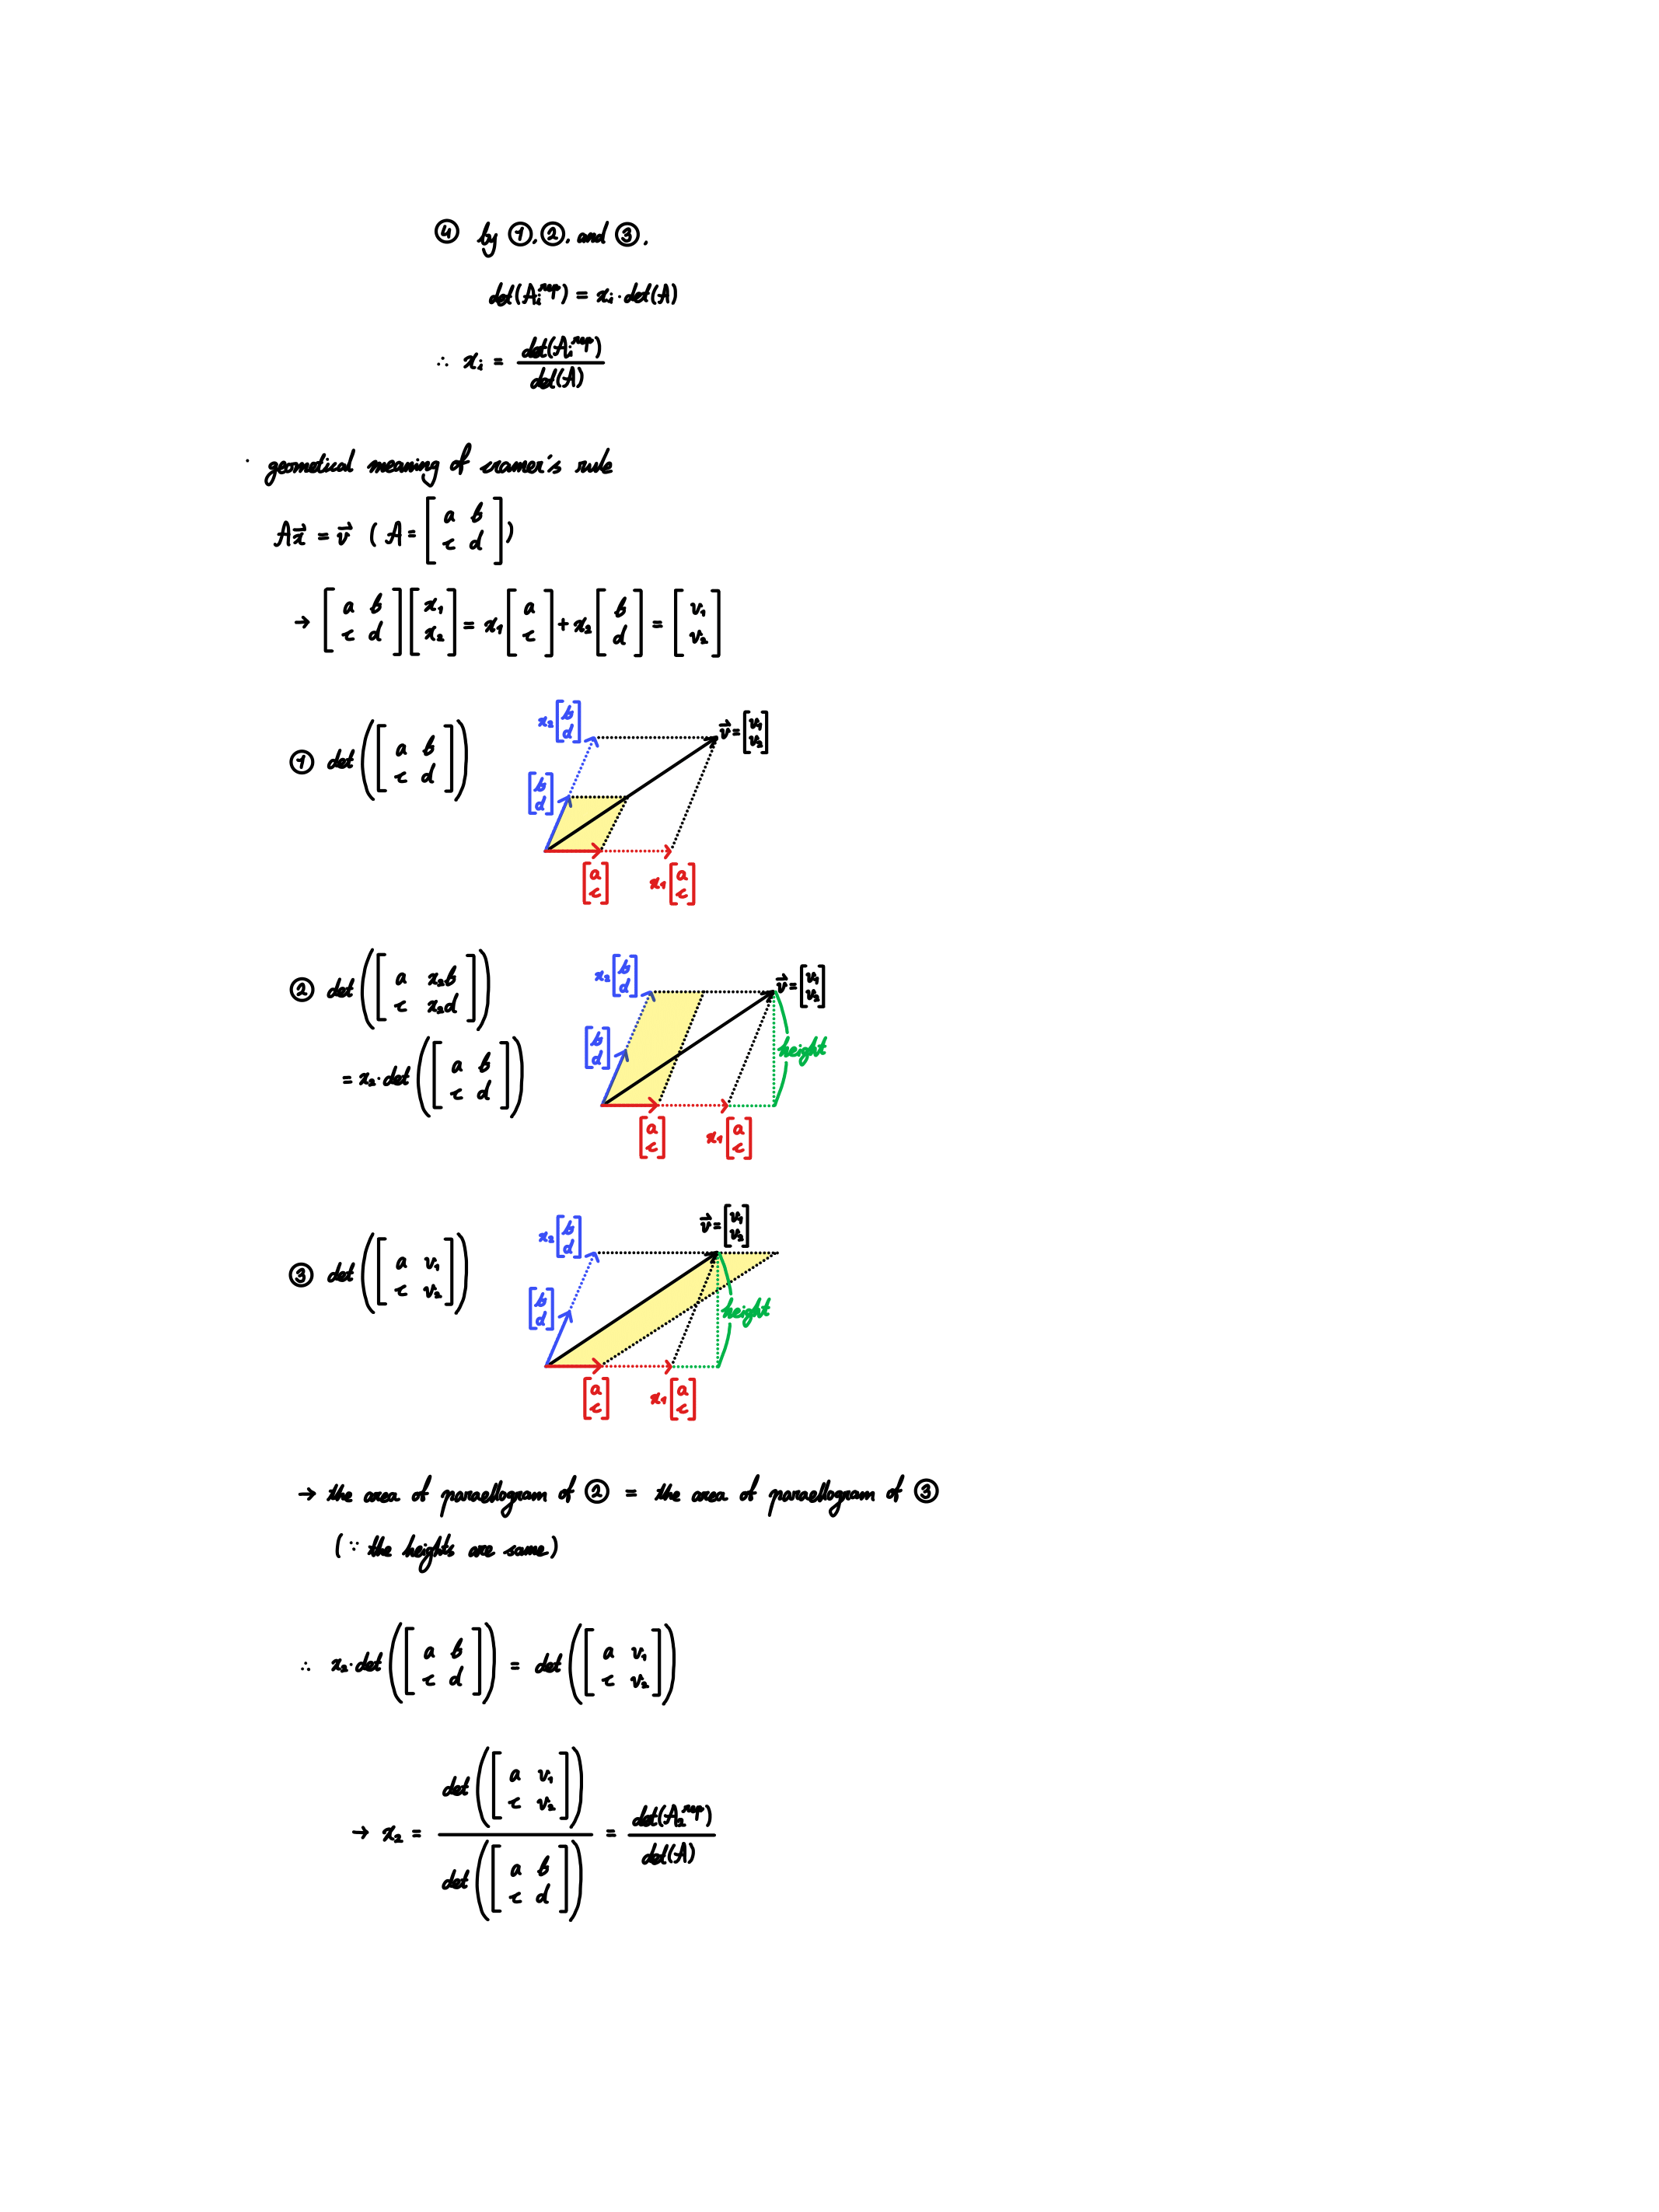 ④ by ①, ②, and ③.
det(Aᵢʳᵉᵖ) = xᵢ · det(A)
∴ xᵢ = det(Aᵢʳᵉᵖ) / det(A)
· geometical meaning of cramer's rule
Ax⃗ = v⃗ ( A = [a b; c d] )
→ [a b; c d] [x₁; x₂] = x₁ [a; c] + x₂ [b; d] = [v₁; v₂]
① det([a b; c d])
x₂ [b; d]
v⃗ = [v₁; v₂]
[b; d]
[a; c]
x₁ [a; c]
② det([a x₂b; c x₂d])
= x₂ · det([a b; c d])
x₂ [b; d]
v⃗ = [v₁; v₂]
[b; d]
height
[a; c]
x₁ [a; c]
③ det([a v₁; c v₂])
x₂ [b; d]
v⃗ = [v₁; v₂]
[b; d]
height
[a; c]
x₁ [a; c]
→ the area of paraellogram of ② = the area of paraellogram of ③
(∵ the heights are same)
∴ x₂ · det([a b; c d]) = det([a v₁; c v₂])
→ x₂ = det([a v₁; c v₂]) / det([a b; c d]) = det(A₂ʳᵉᵖ) / det(A)